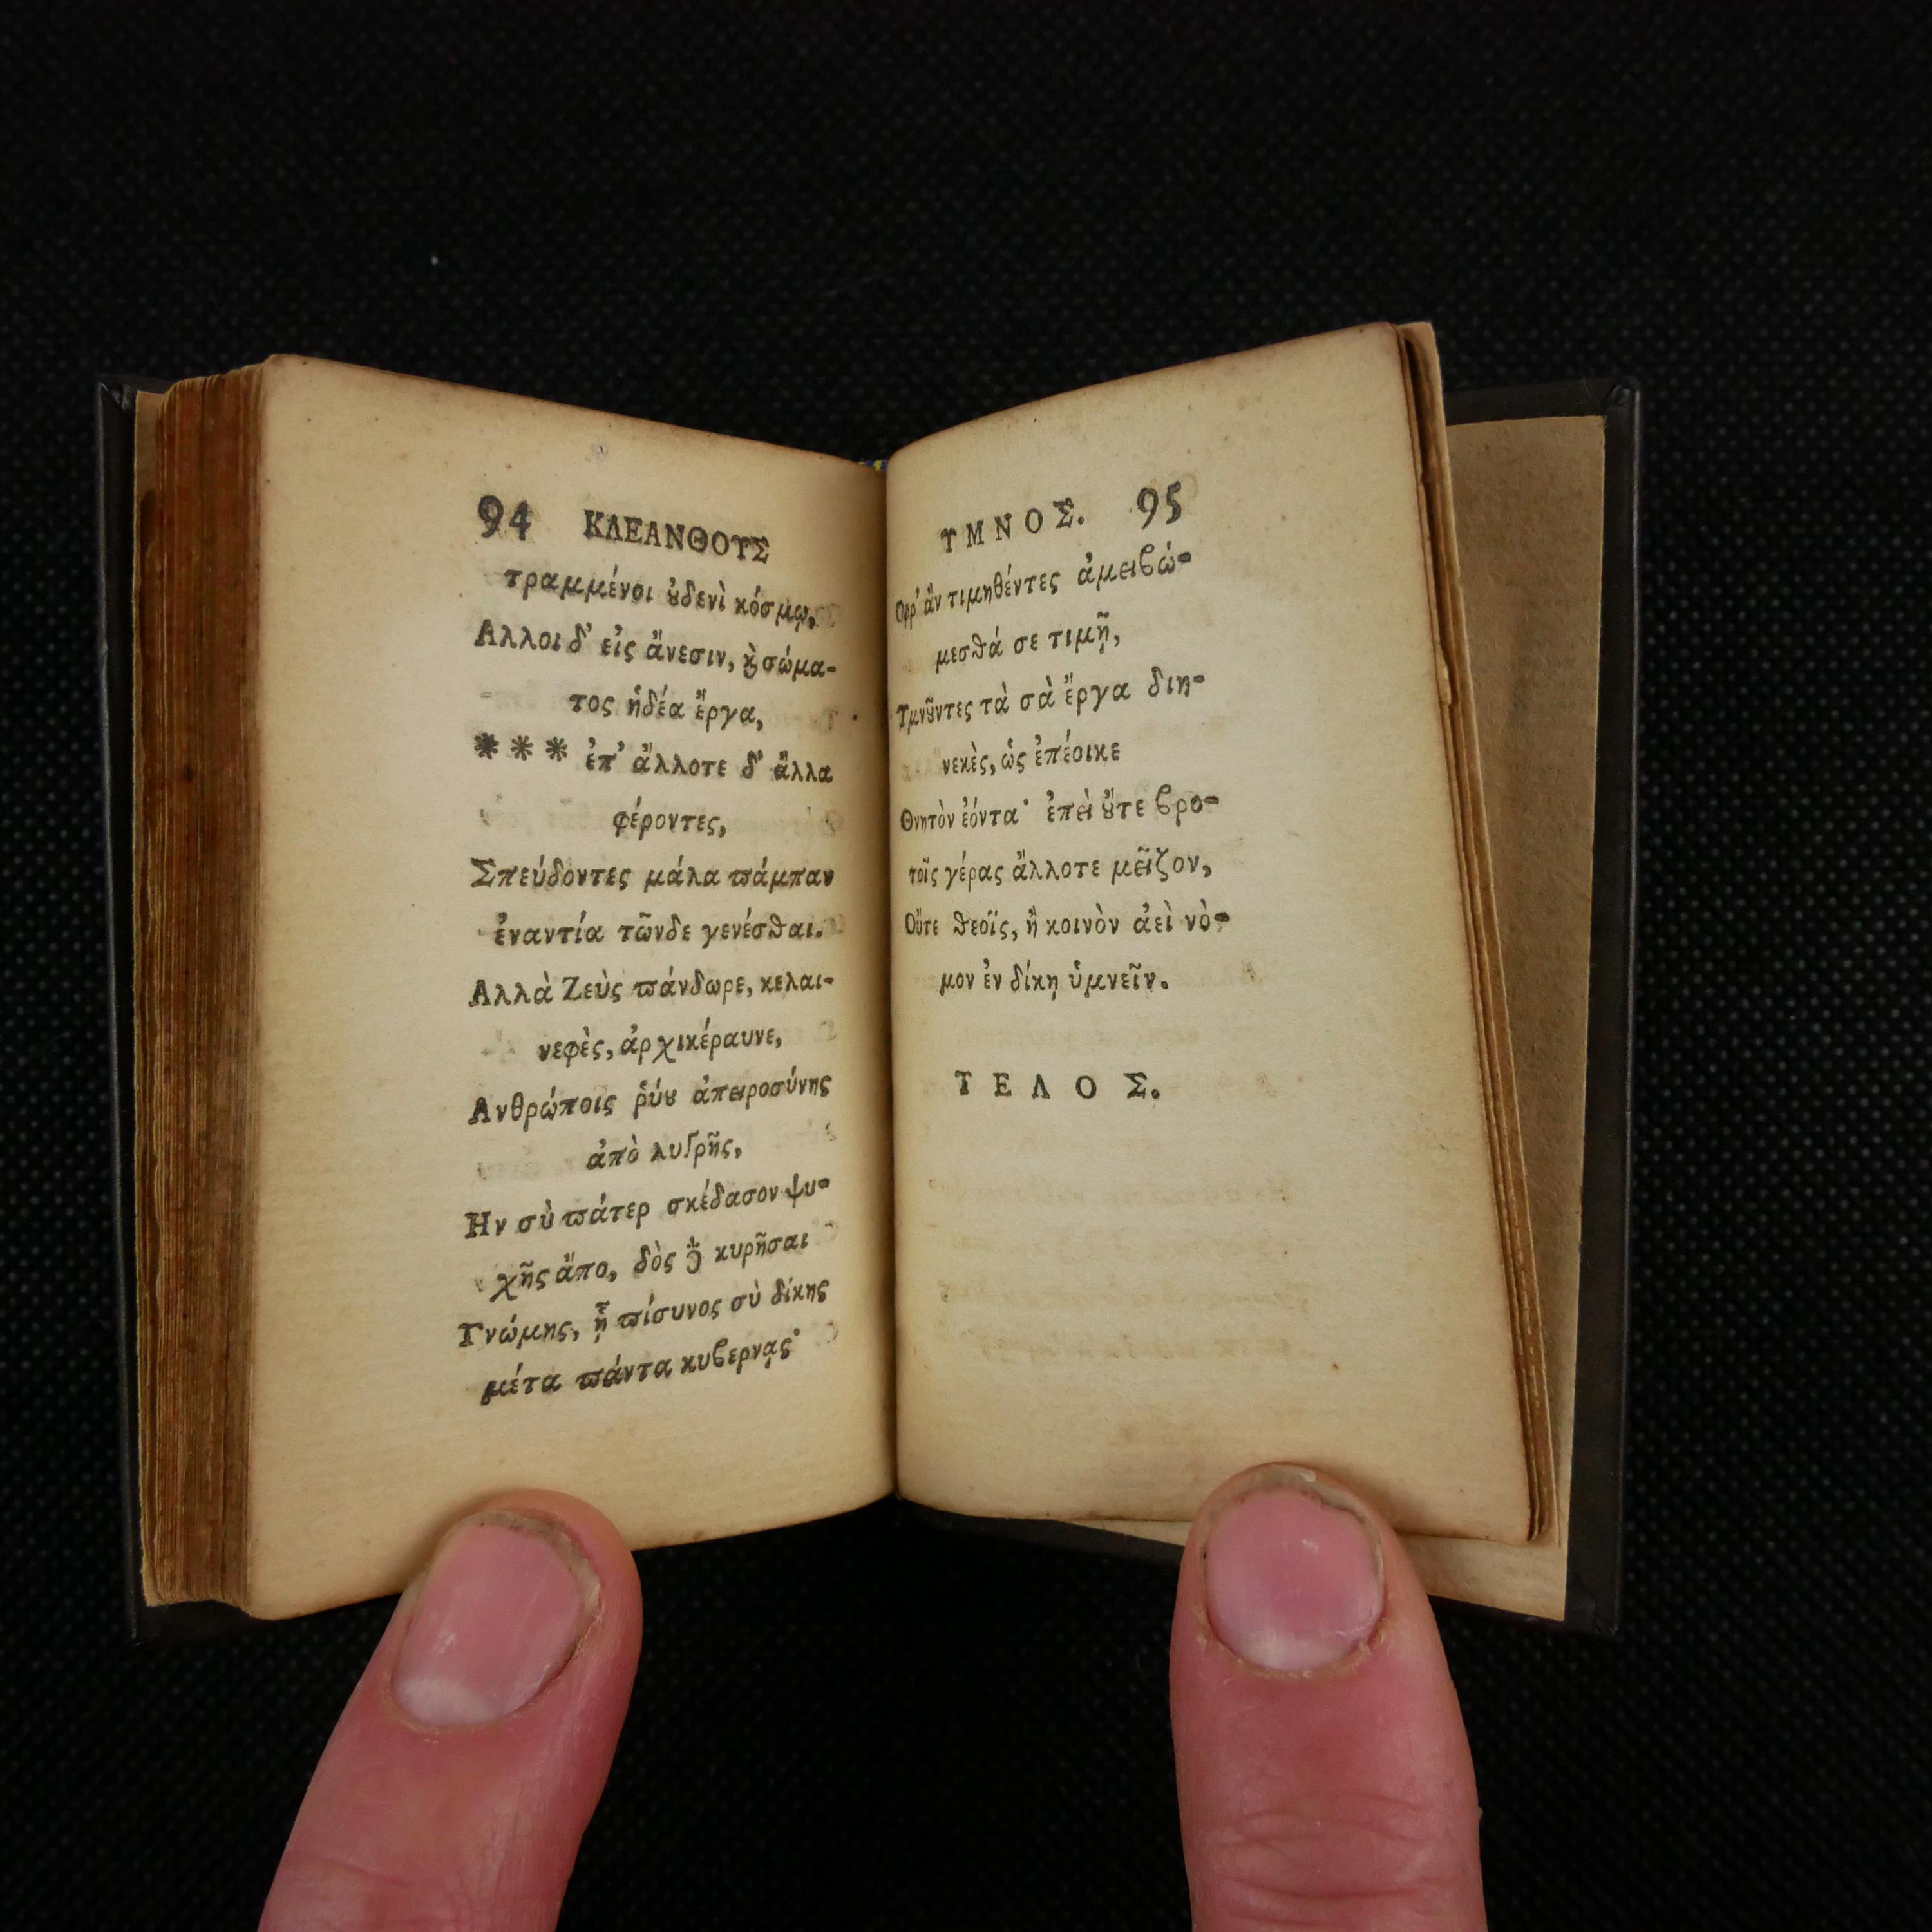 94 ΚΛΕΑΝΘΟΥΣ
τραμμένοι ȣ̓δενὶ κόσμῳ,
Αλλοι δ᾽ εἰς ἄνεσιν, ϗ̀ σώμα-
τος ἡδέα ἔργα,
* * * ἐπ᾽ ἄλλοτε δ᾽ ἄλλα
φέροντες,
Σπεύδοντες μάλα ϖάμπαν
ἐναντία τῶνδε γενέσϑαι.
Αλλὰ Ζεὺς ϖάνδωρε, κελαι-
νεφὲς, ἀρχικέραυνε,
Ανθρώποις ῥύȣ ἀπειροσύνης
ἀπὸ λυγρῆς,
Ην σὺ ϖάτερ σκέδασον ψυ-
χῆς ἄπο, δὸς δὲ κυρῆσαι
Γνώμης, ᾗ ϖίσυνος σὺ δίκης
μέτα ϖάντα κυϐερνᾳς·
ΥΜΝΟΣ. 95
Οφρ᾽ ἂν τιμηθέντες ἀμειϐώ-
μεσϑά σε τιμῇ,
Υμνȣ͂ντες τὰ σὰ ἔργα διη-
νεκὲς, ὡς ἐπέοικε
Θνητὸν ἐόντα· ἐπεὶ ȣ̓́τε ϐρο-
τοῖς γέρας ἄλλοτε μεῖζον,
Οὔτε ϑεοῖς, ἢ κοινὸν ἀεὶ νὸ-
μον ἐν δίκῃ ὑμνεῖν.
ΤΕΛΟΣ.